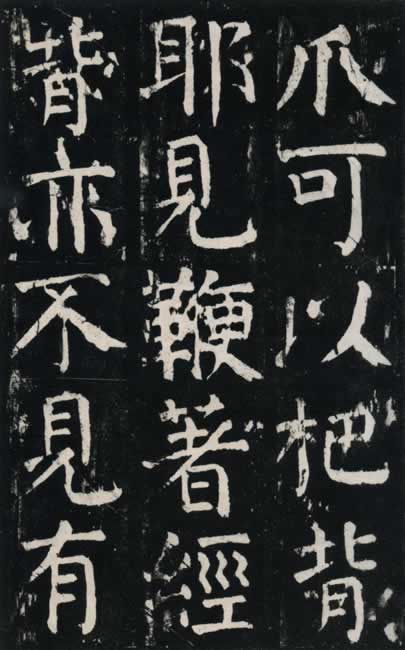 爪可以杷背
耶見鞭著經
背亦不見有